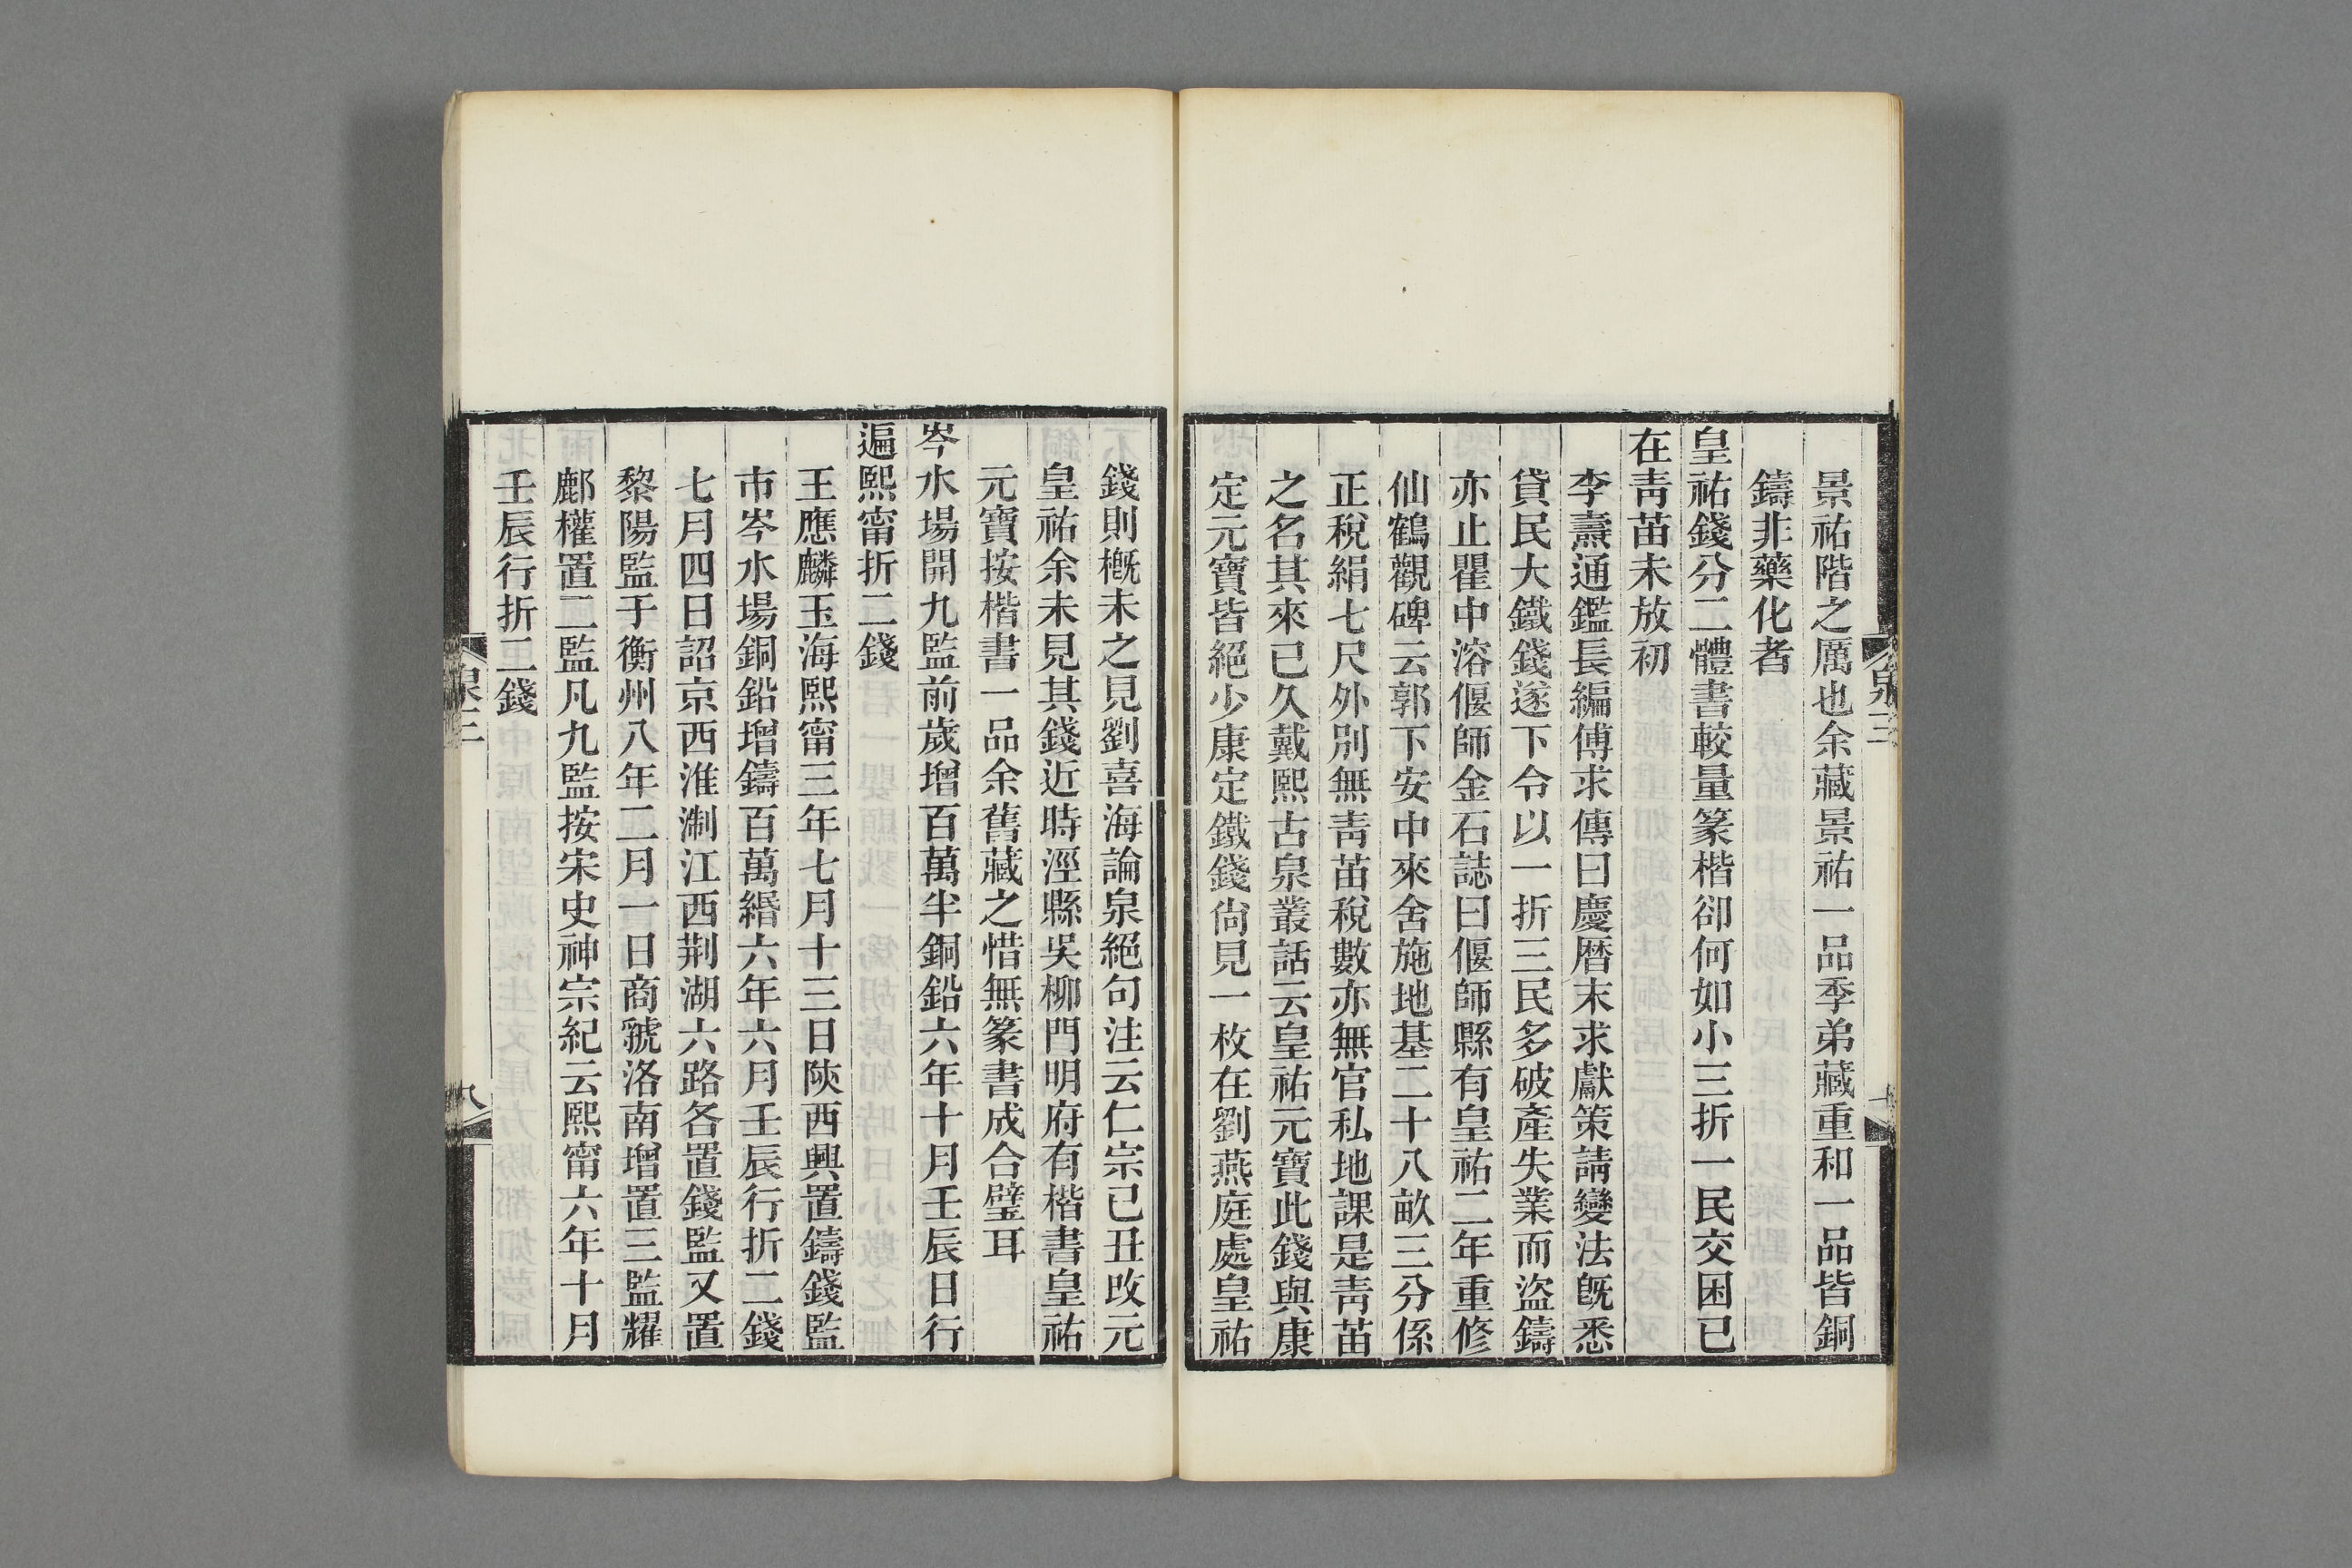 景祐階之厲也余藏景祐一品季弟藏重和一品皆銅
鑄非藥化者
皇祐錢分二體書較量篆楷卻何如小三折一民交困已
在靑苗未放初
李燾通鑑長編傅求傳曰慶曆末求獻策請變法旣悉
貸民大鐵錢遂下令以一折三民多破產失業而盜鑄
亦止瞿中溶偃師金石誌曰偃師縣有皇祐二年重修
仙鶴觀碑云郭下安中來舍施地基二十八畝三分係
正稅絹七尺外別無靑苗稅數亦無官私地課是靑苗
之名其來已久戴熙古泉叢話云皇祐元寶此錢與康
定元寶皆絕少康定鐵錢尙見一枚在劉燕庭處皇祐
錢則槪未之見劉喜海論泉絕句注云仁宗已丑改元
皇祐余未見其錢近時涇縣吳柳門明府有楷書皇祐
元寶按楷書一品余舊藏之惜無篆書成合璧耳
岑水場開九監前歲增百萬半銅鉛六年十月壬辰日行
遍熙甯折二錢
王應麟玉海熙甯三年七月十三日陝西興置鑄錢監
市岑水場銅鉛增鑄百萬緡六年六月壬辰行折二錢
七月四日詔京西淮淛江西荆湖六路各置錢監又置
黎陽監于衡州八年二月一日商虢洛南增置三監耀
鄜權置二監凡九監按宋史神宗紀云熙甯六年十月
壬辰行折二錢
泉三
八